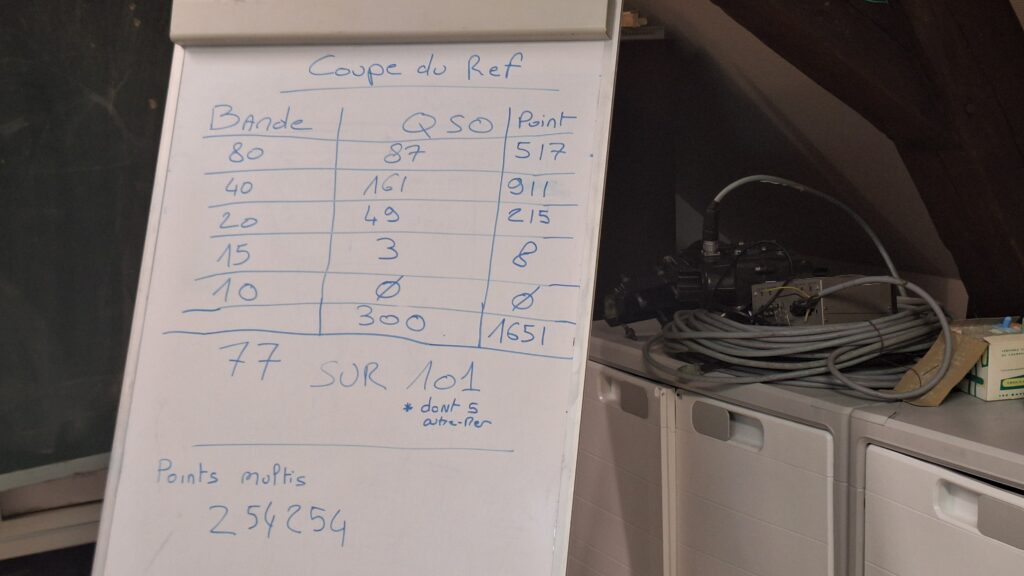 Coupe du Ref
Bande QSO Point
80 87 517
40 161 911
20 49 215
15 3 8
10 Ø Ø
300 1651
77 SUR 101
* dont 5
outre-Mer
Points multis
254254